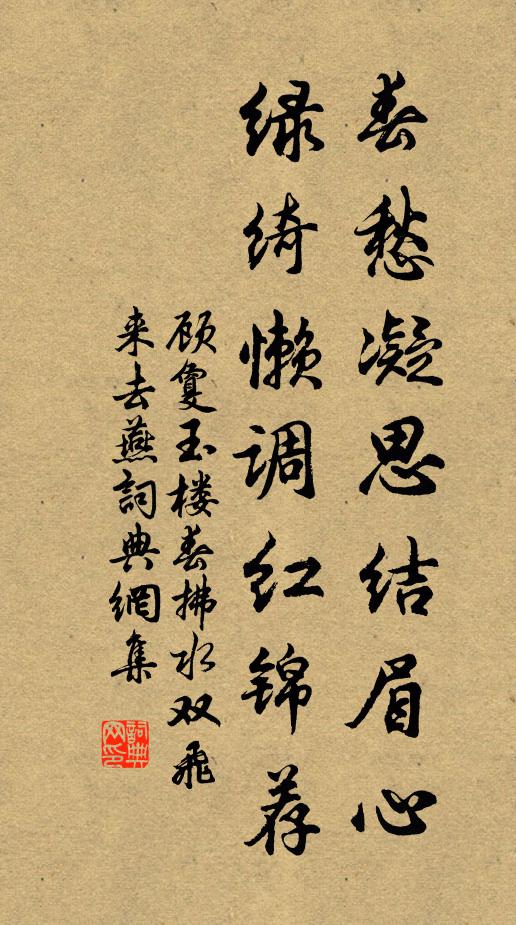 春愁凝思结眉心
绿绮懒调红锦荐
顾夐玉楼春拂水双飞
来去燕詞典網集
詞典
网印